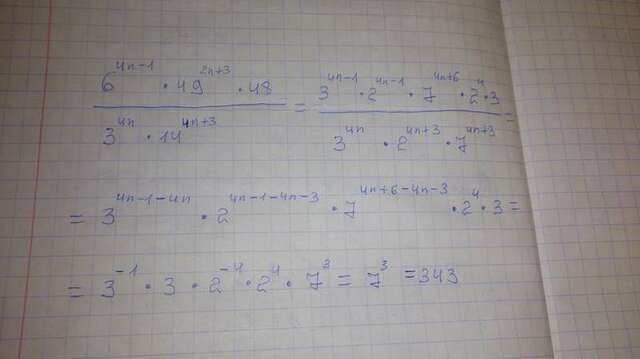 6^{4n-1} · 49^{2n+3} · 48 / 3^{4n} · 14^{4n+3} = 3^{4n-1} · 2^{4n-1} · 7^{4n+6} · 2^4 · 3 / 3^{4n} · 2^{4n+3} · 7^{4n+3} =
= 3^{4n-1-4n} · 2^{4n-1-4n-3} · 7^{4n+6-4n-3} · 2^4 · 3 =
= 3^{-1} · 3 · 2^{-4} · 2^4 · 7^3 = 7^3 = 343